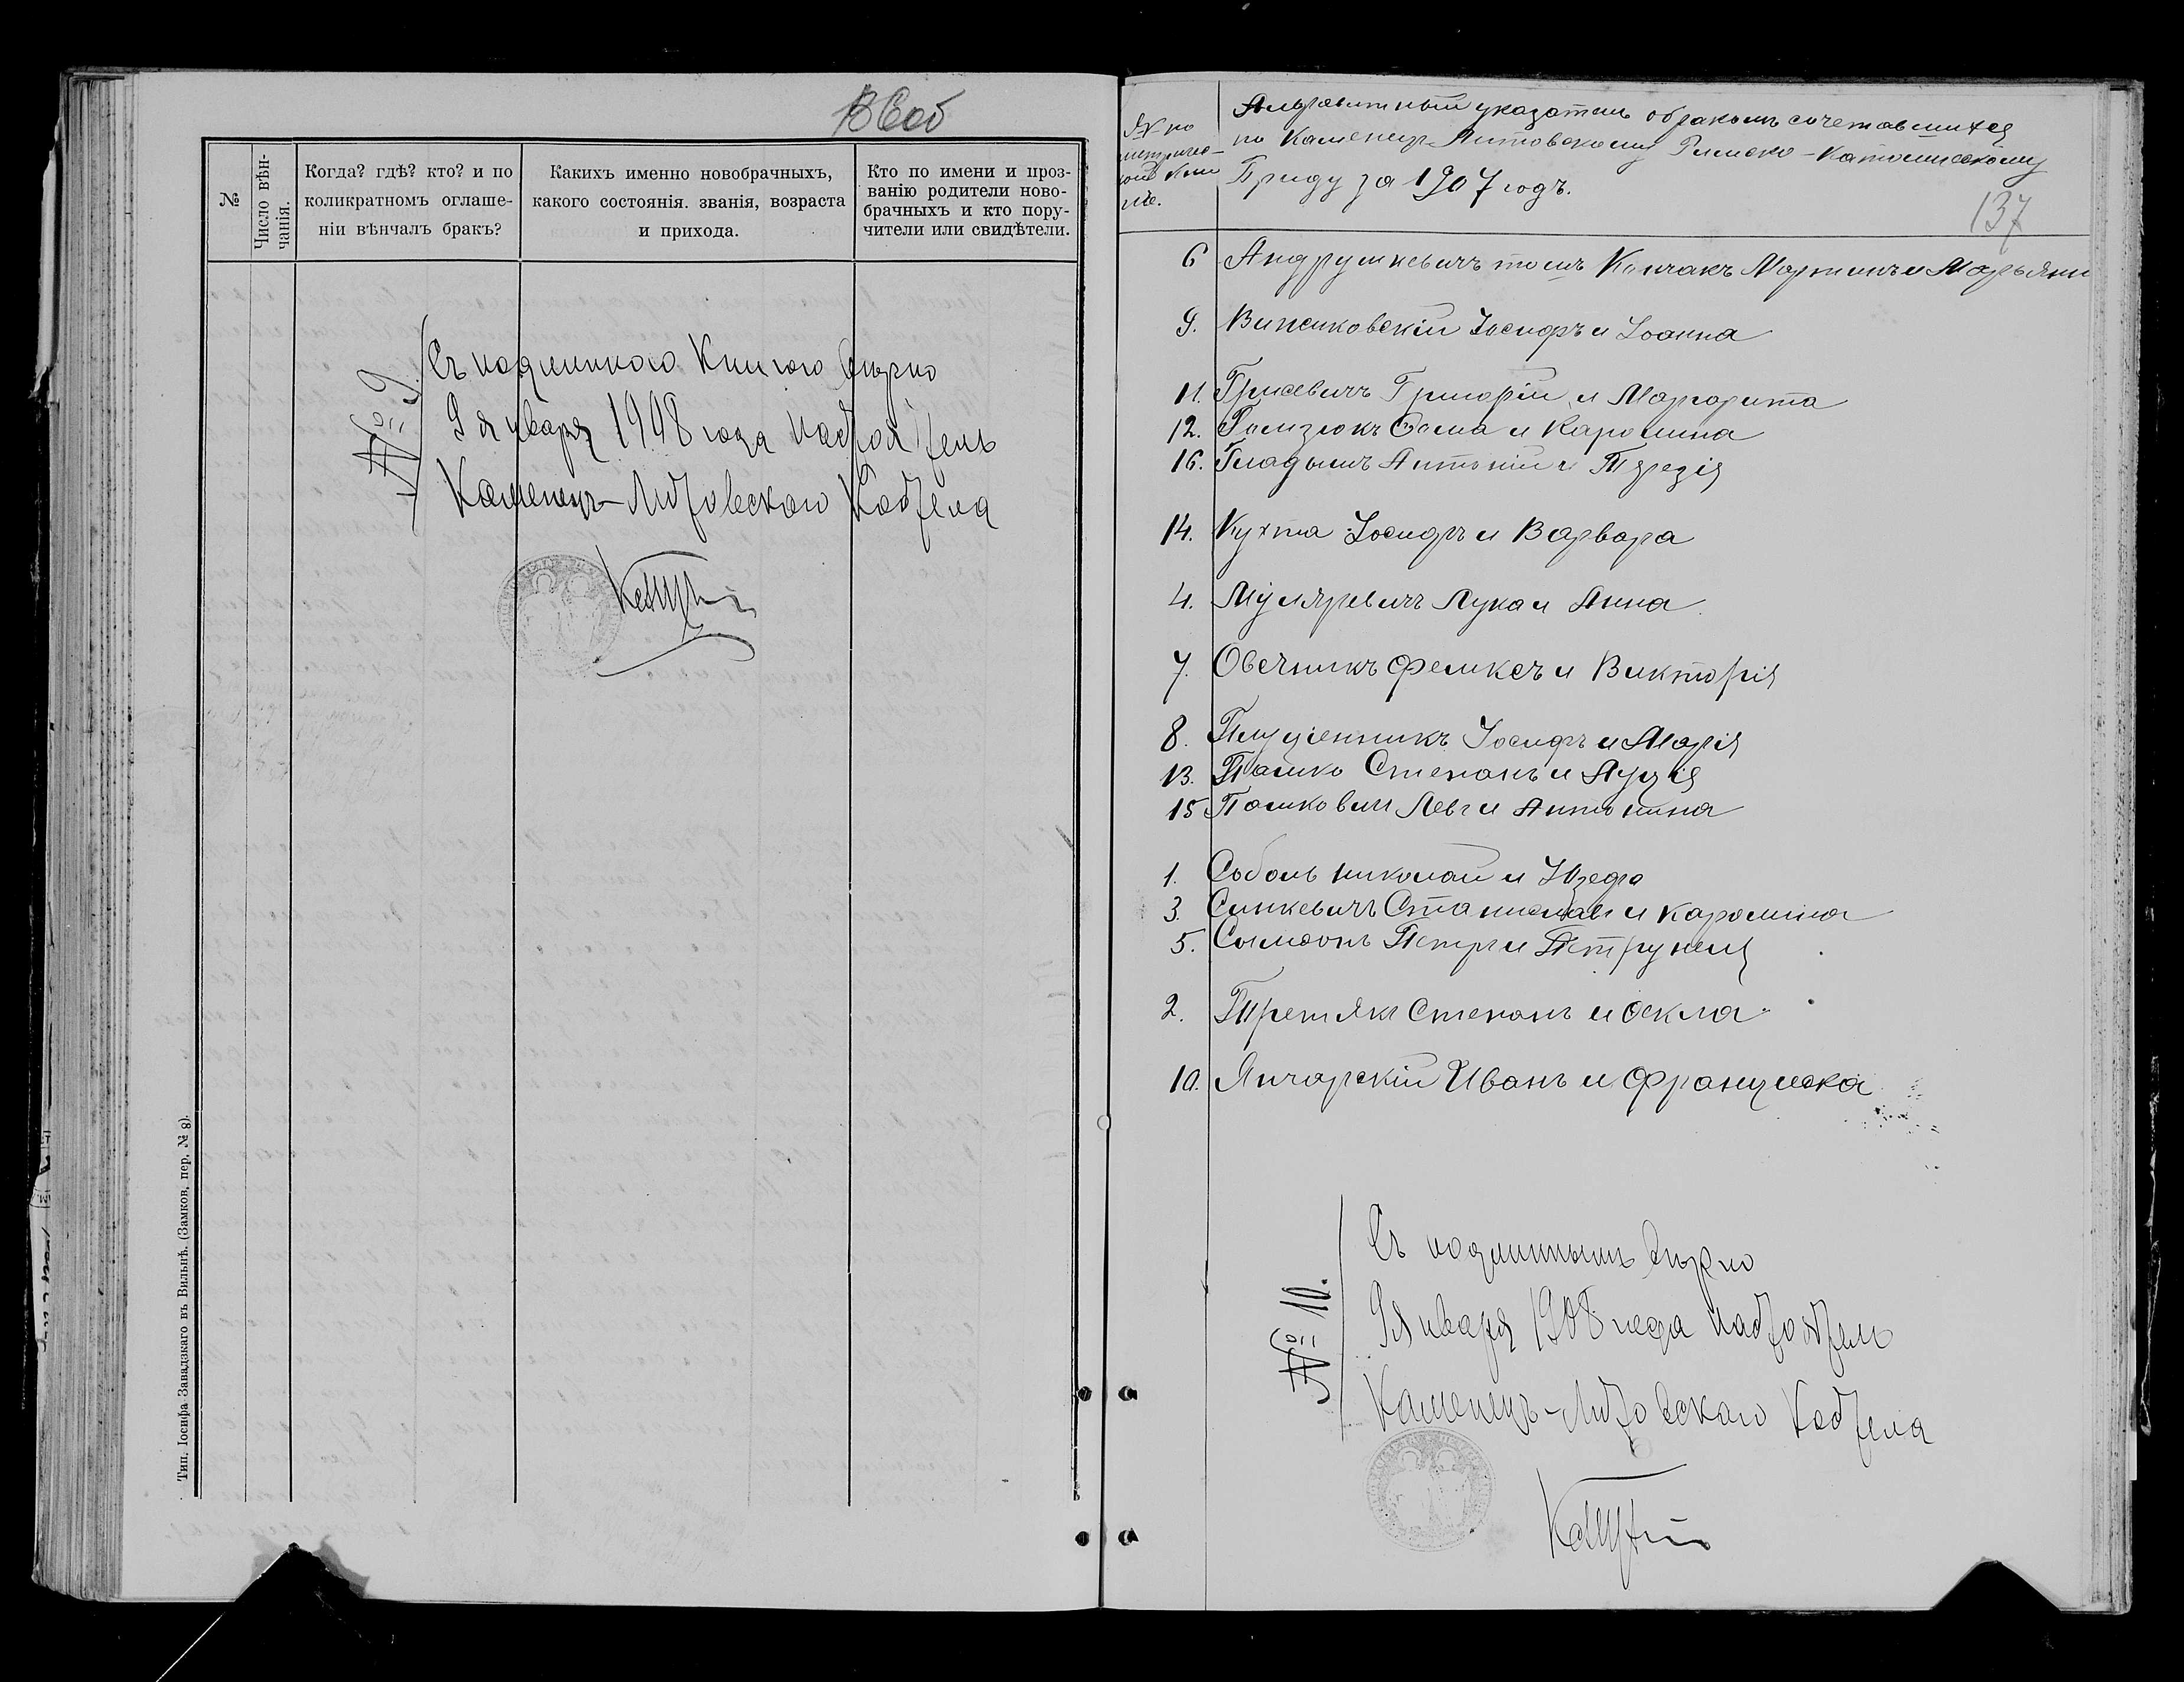 №
Число вѣн-
чанія.
Когда? гдѣ? кто? и по
коликратномъ оглаше-
ніи вѣнчалъ бракъ?
Какихъ именно новобрачныхъ,
какого состоянія. званія, возраста
и прихода.
Кто по имени и проз-
ванію родители ново-
брачныхъ и кто пору-
чители или свидѣтели.
№ 9.
Съ подлинною Книгою вѣрно
9 января 1908 года Настоятель
Каменецъ-Литовскаго Костела
Тип. Іосифа Завадзкаго въ Вильнѣ. (Замков. пер. № 8).
№ по
метриче-
ской Кни
гѣ.
Алфавитный указатель о бракомъ сочетавшихся
по Каменецъ-Литовскому Римско-Католическому
Приду за 1907 годъ.
137
6 Андрушкевичъ тожъ Кончакъ Мартинъ и Марьянн
9. Виньковскій Іосифъ и Іоанна
11. Грисевичъ Григорій и Маргарита
12. Гомзюкъ Ѳома и Каролина
16. Гладышъ Антоній и Терезія
14. Кухта Іосифъ и Варвара
4. Муляревичъ Лука и Анна
7. Овечникъ Феликсъ и Викторія
8. Плущенникъ Іосифъ и Марія
13. Пашко Степанъ и Луція
15 Пашкевич Левъ и Антонина
1. Соболь николай и Юзефа
3. Синкевичъ Станиславъ и Каролина
5. Сымоонъ Петръ и Петрунеля
2. Третьякъ Степанъ и Ѳекла
10. Янчарскій Иванъ и Франциска
№ 10.
Съ подлиннымъ вѣрно
9 января 1908 года Настоятель
Каменецъ-Литовскаго Костела